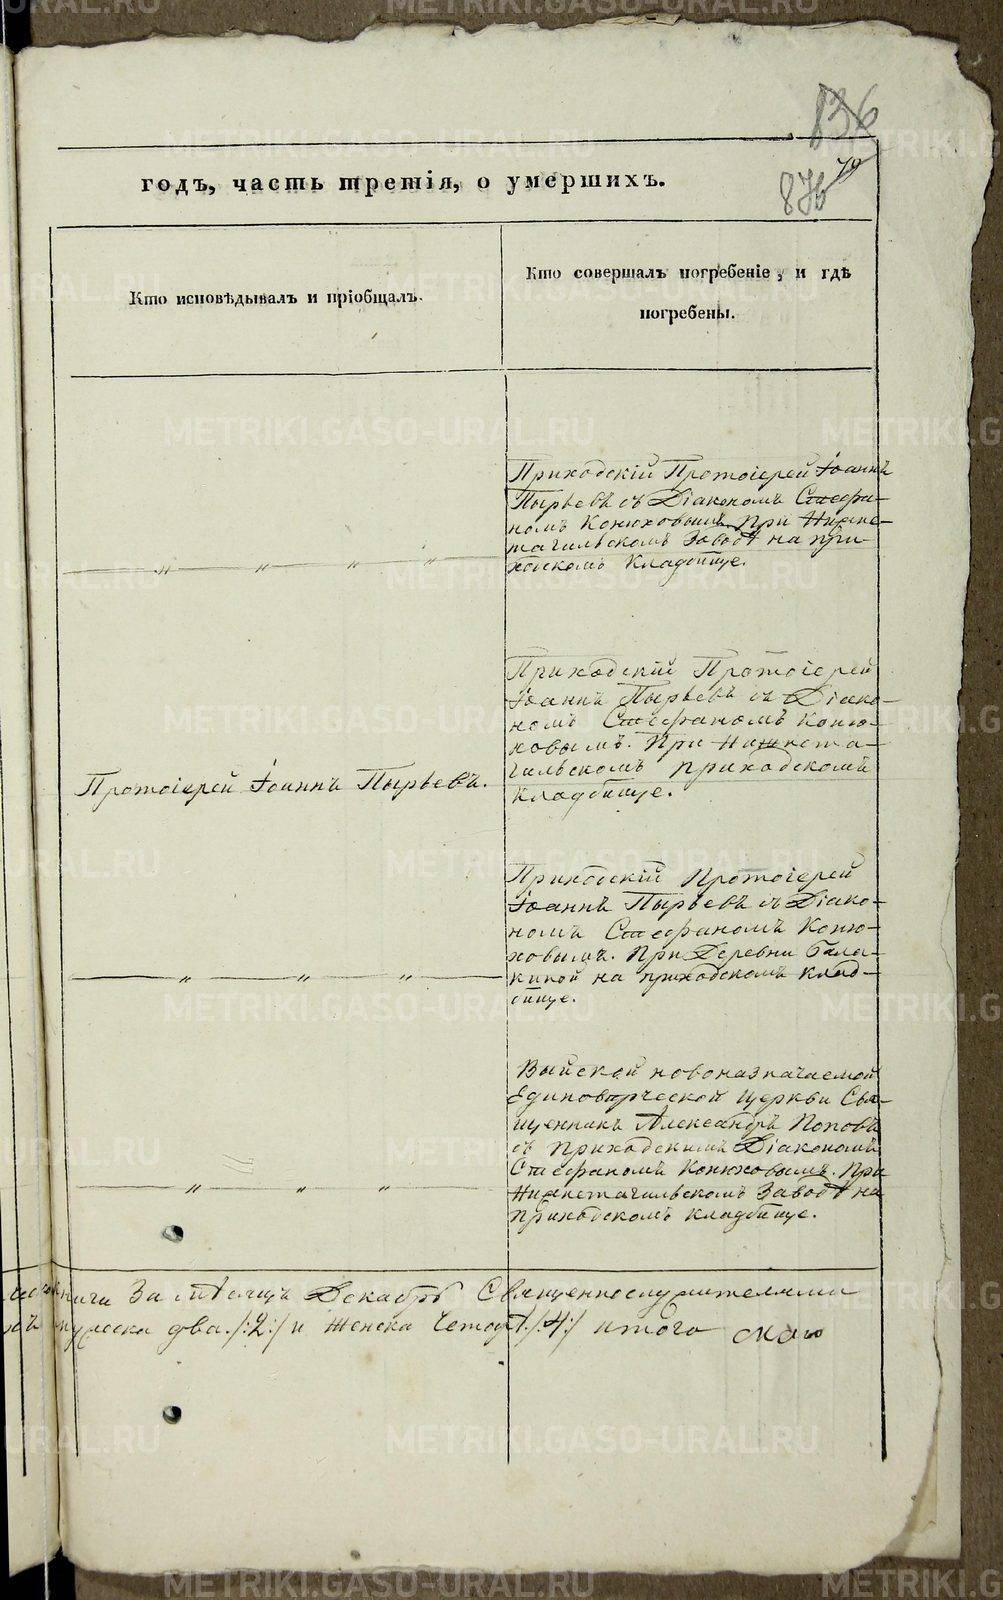 136
годъ, часть третія, о умершихъ.
876
79
Кто исповѣдывалъ и пріобщалъ.
Кто совершалъ погребеніе, и гдѣ
погребены.
Приходскій Протоіерей Іоаннъ
Пырьевъ съ Діакономъ Стефа-
номъ Конюховымъ. При Нижне-
тагильскомъ Заводѣ на при-
ходскомъ кладбище.
Протоіерей Іоаннъ Пырьевъ.
Приходскій Протоіерей
Іоаннъ Пырьевъ съ Діако-
номъ Стефаномъ Коню-
ховымъ. При Нижнета-
гильскомъ приходскомъ
кладбище.
Приходскій Протоіерей
Іоаннъ Пырьевъ съ Діако-
номъ Стефаномъ Коню-
ховымъ. При Деревни Бала-
киной на приходскомъ клад-
бище.
Выйской новоназначаемой
Единовѣрческой Церкви Свя-
щенникъ Александръ Поповъ
съ приходскимъ Діакономъ
Стефаномъ Конюховымъ. При
Нижнетагильскомъ Заводѣ на
приходскомъ кладбище.
книги За мѣсяцъ Декабрь Священнослужителями
мужеска два ./:2:/ и Женска четыре /:4:/ итого
METRIKI.GASO-URAL.RU